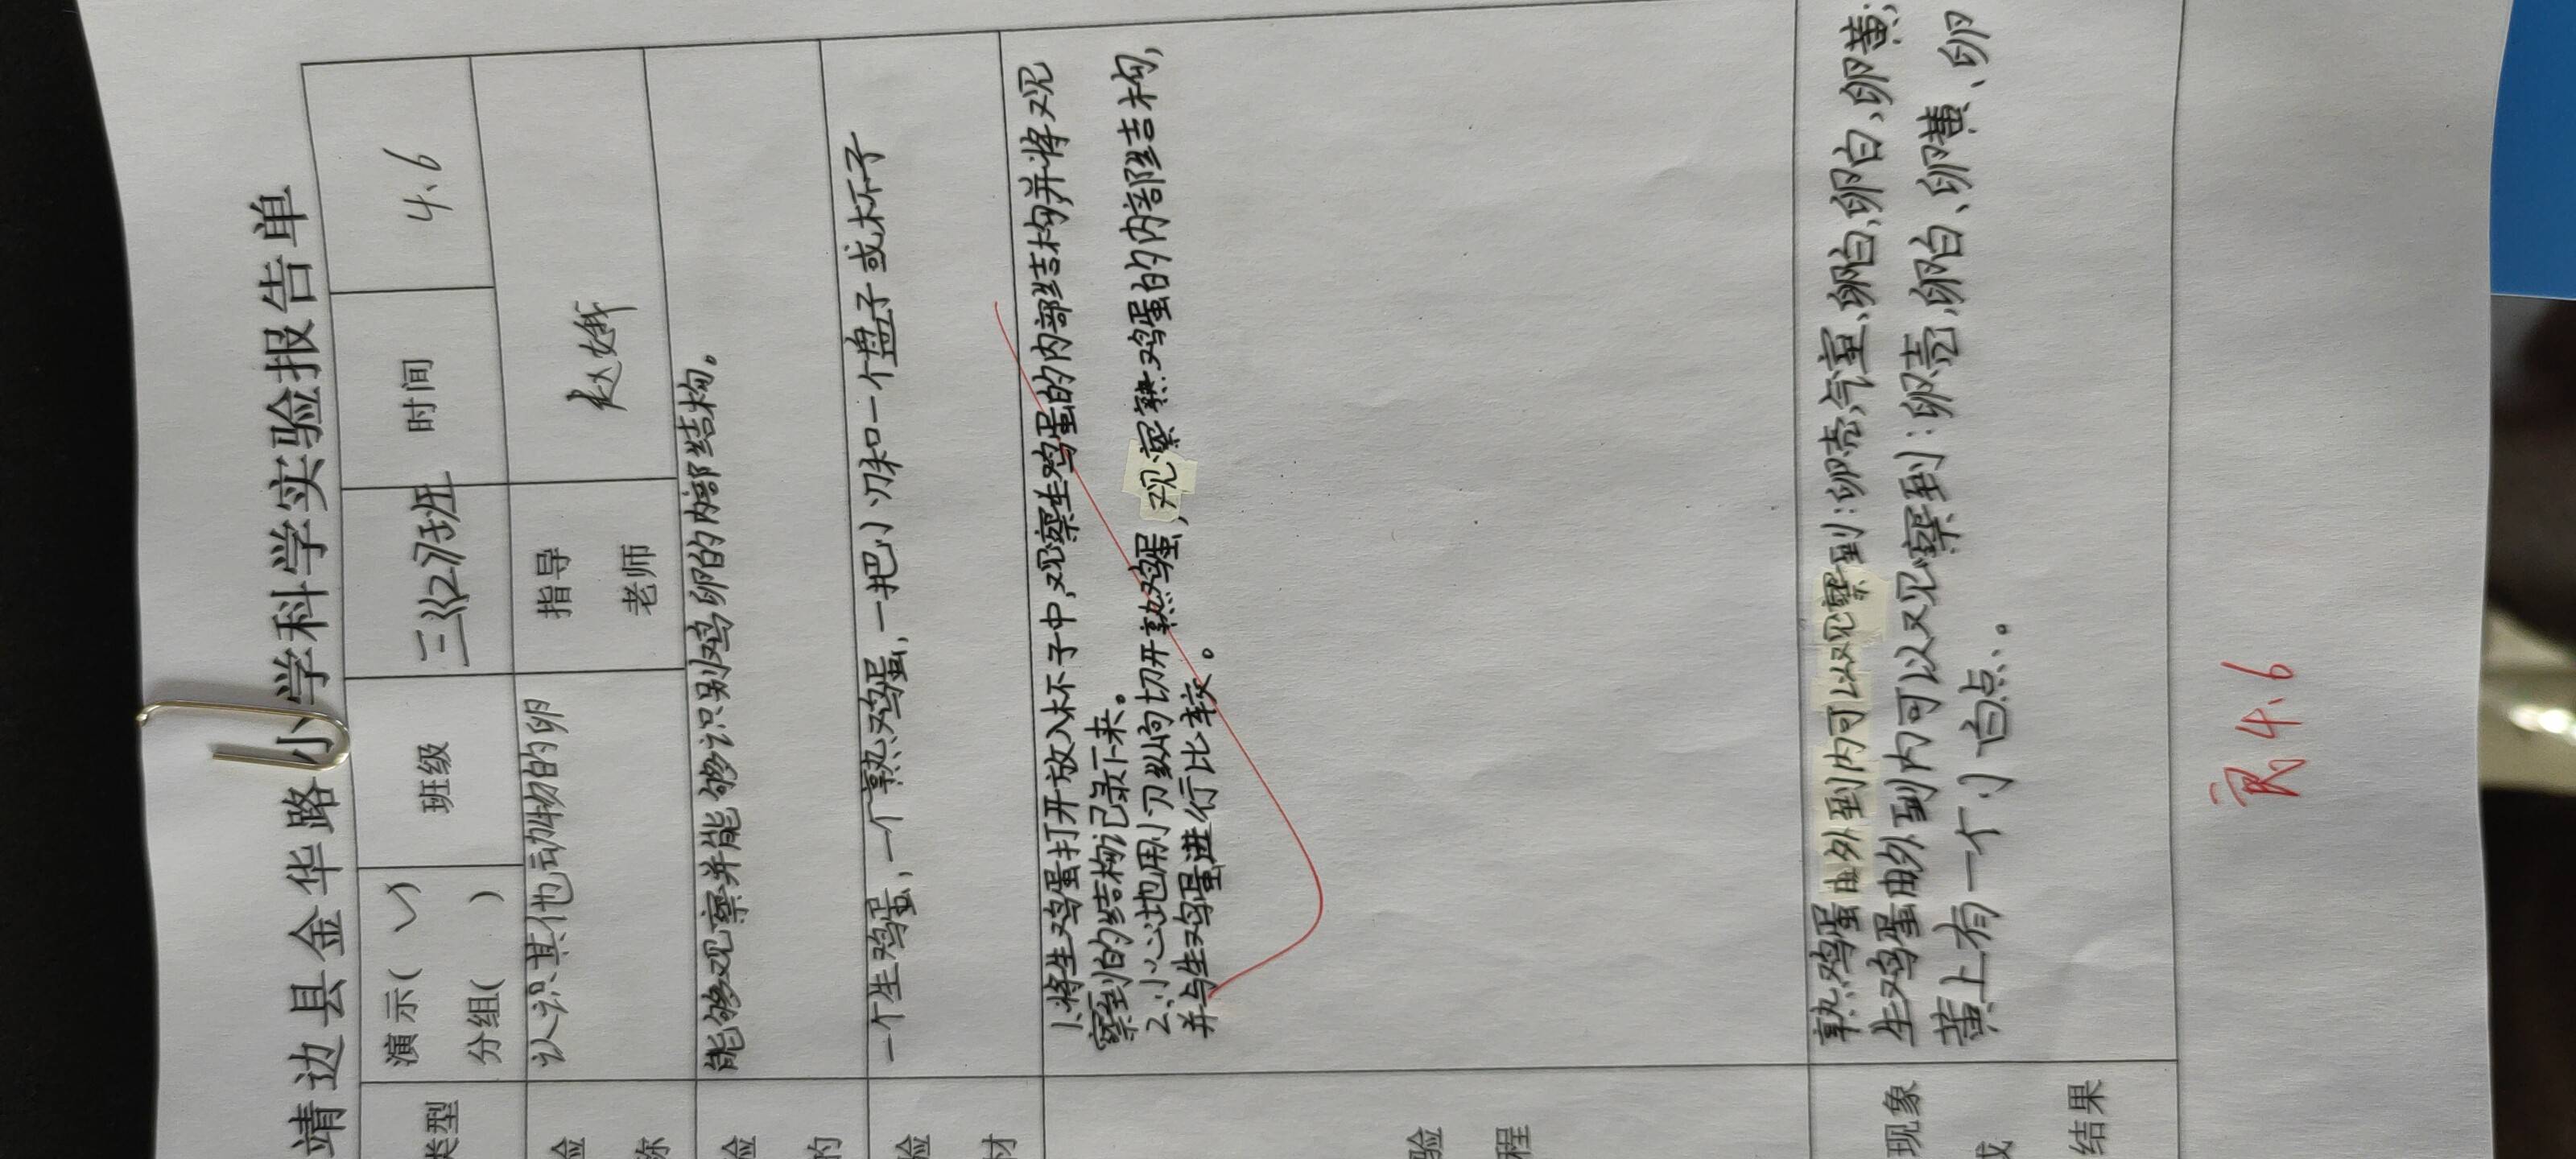 靖边县金华路小学科学实验报告单
类型 演示(✓) 分组( ) 班级 三(2)班 时间 4.6
验 称 认识其他动物的卵 指导 老师
验 的 能够观察并能够识别鸡卵的内部结构。
验 材 一个生鸡蛋,一个熟鸡蛋,一把小刀和一个盘子或杯子
验 程
1.将生鸡蛋打开放入杯子中,观察生鸡蛋的内部结构并将观
察到的结构记录下来。
2.小心地用小刀纵向切开熟鸡蛋,观察熟鸡蛋的内部结构,
并与生鸡蛋进行比较。
现象 或 结果
熟鸡蛋由外到内可以观察到:卵壳、气室、卵白、卵白、卵黄;
生鸡蛋由外到内可以观察到:卵壳、卵白、卵黄、卵
黄上有一个小白点。
4.6